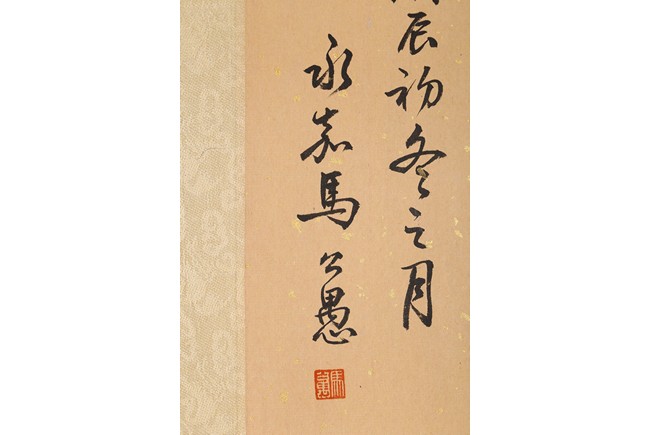 辰初冬之月
永嘉馬公愚